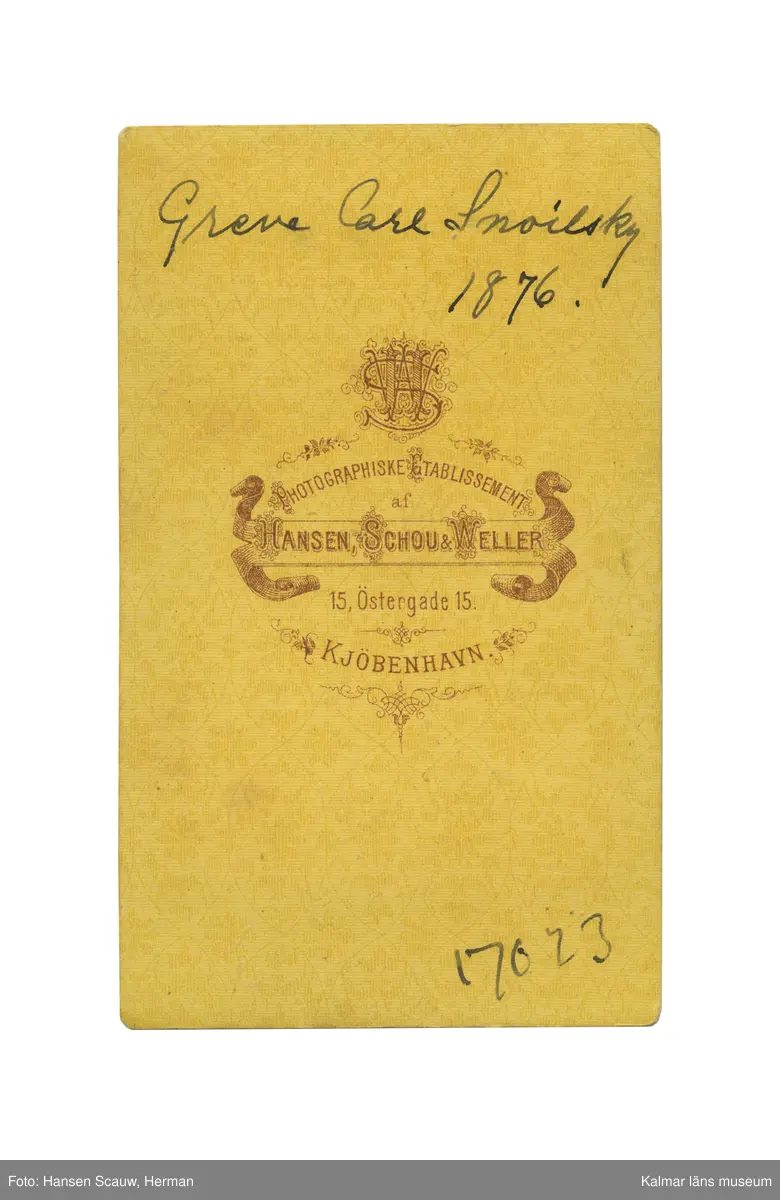 Greve Carl Snoilsky
1876.
HSW
PHOTOGRAPHISKE ETABLISSEMENT
af
HANSEN, SCHOU & WELLER
15, Östergade 15.
KJÖBENHAVN.
17023
Foto: Hansen Scauw, Herman
Kalmar läns museum